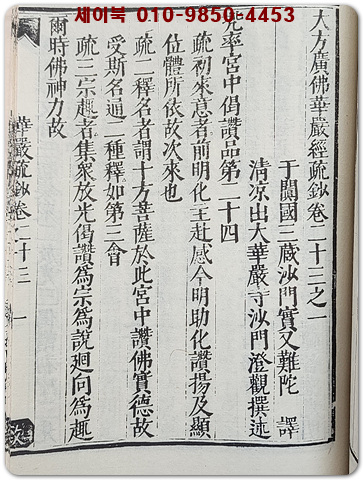 세이북 010-9850-4453
大方廣佛華嚴經疏鈔卷二十三之一
于闐國三藏沙門實叉難陀 譯
清涼山大華嚴寺沙門澄觀撰述
兜率宮中偈讚品第二十四
疏初來意者前明化主赴感今明助化讚揚及顯
位體所依故次來也
疏二釋名者謂十方菩薩於此宮中讚佛實德故
受斯名通二種釋如第三會
疏三宗趣者集眾放光偈讚為宗為說迴向為趣
爾時佛神力故
華嚴疏鈔卷二十三 一